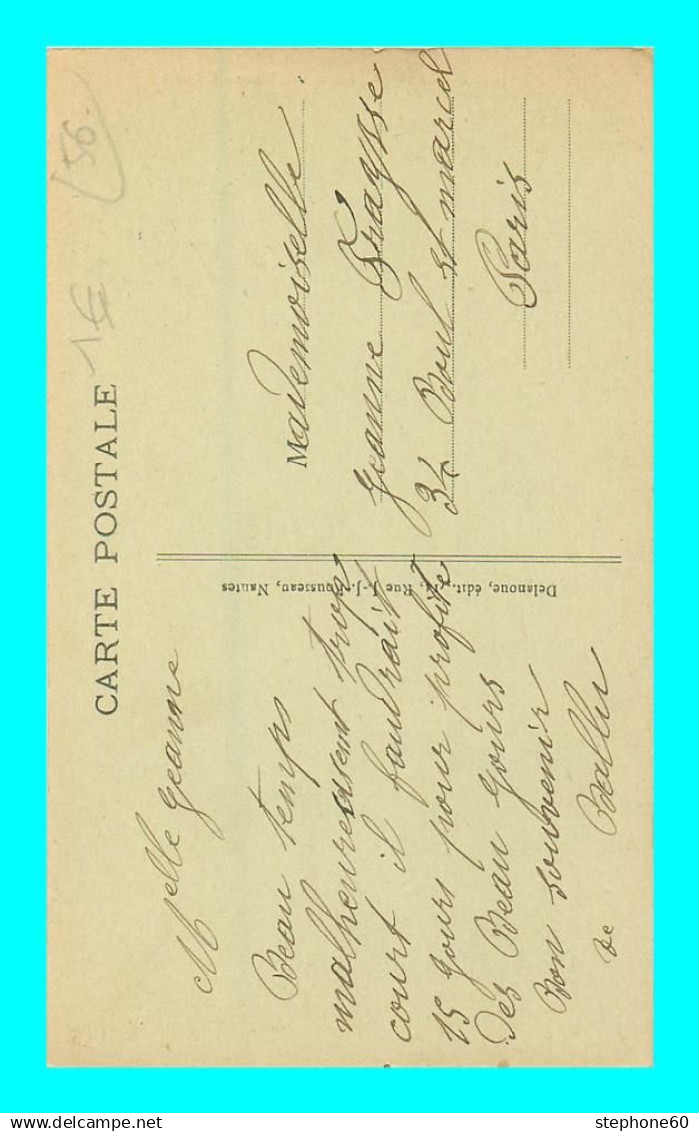 CARTE POSTALE
1€
(56.)
Melle Jeanne
Beau temps
malheureusemt trop
court il faudrait
15 jours pour profité
des Beau jours
Bon souvenir
de Ballu
Delanoue, édit., Rue J.-J. Rousseau, Nantes
Mademoiselle
Jeanne Fraysse
34 Boul st marcel
Paris
stephone60